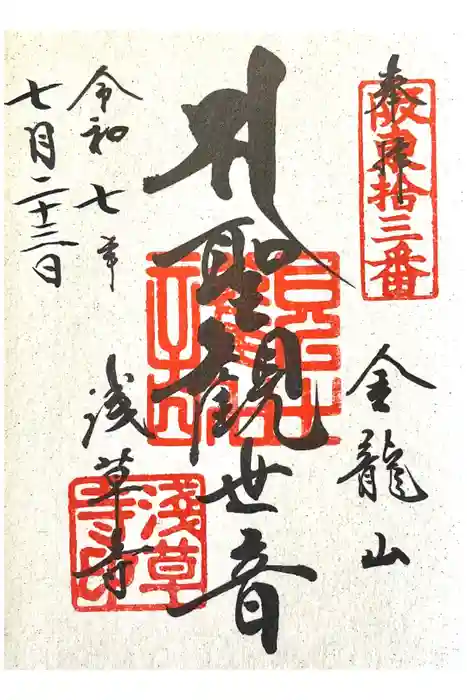 奉拝
坂東拾三番
金龍山
聖観世音
浅草寺
淺草寺印
令和七年
七月二十三日